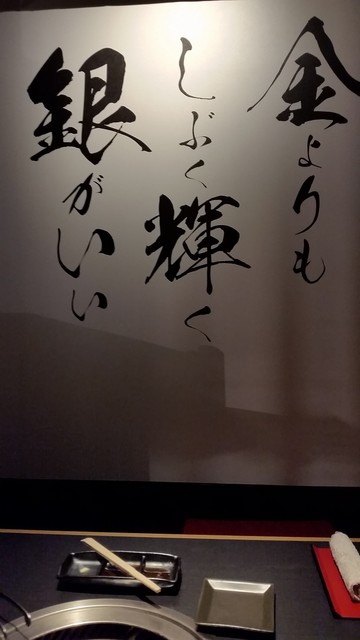 金よりも
しぶく輝く
銀がいい